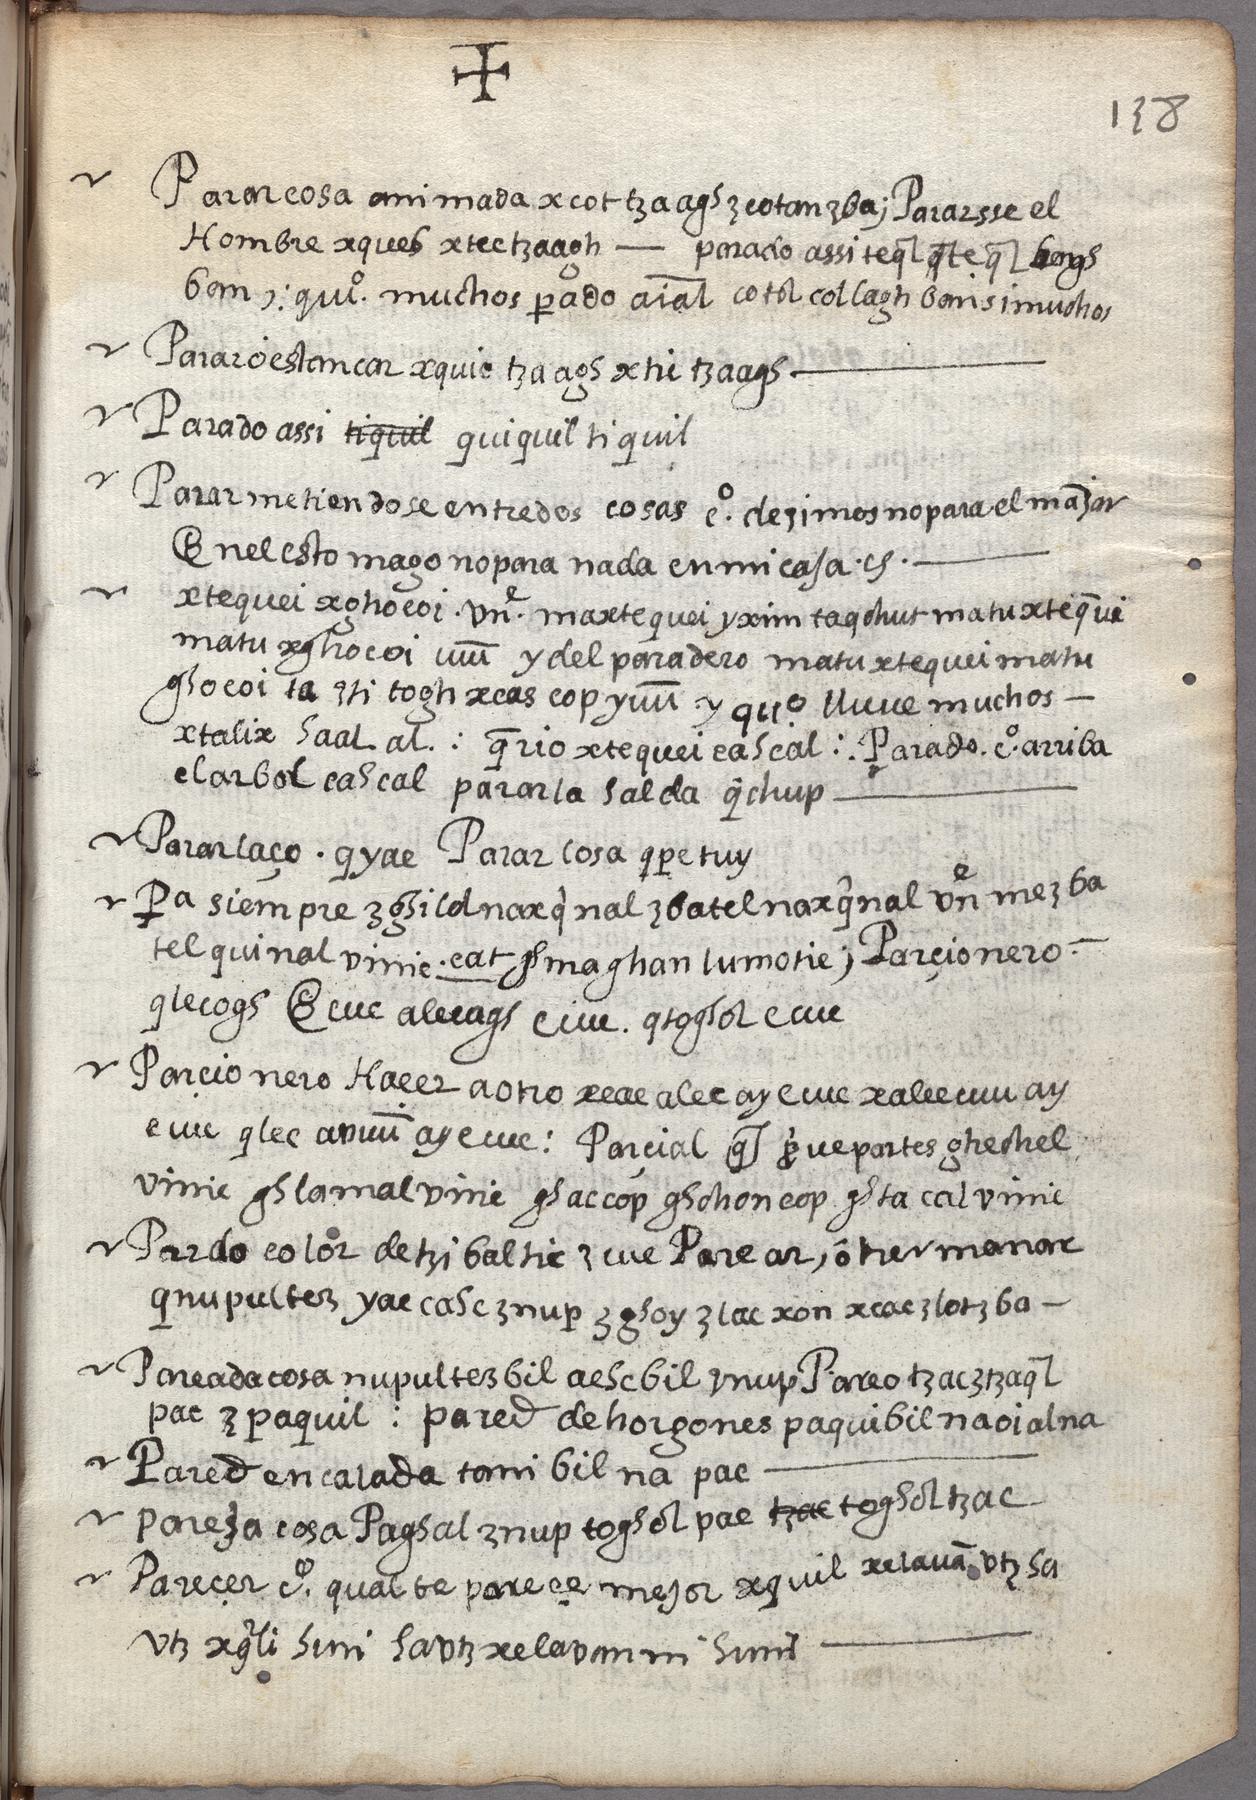 138
Parar cosa animada xcot tzaagh zcotanzba; Pararsse el
Hombre xqueb xtec tzaagh — parado assi teq̃l q̃teq̃l bengh
bam ,: quiº. muchos p̱ado aiãl cotol collagh banisimuchos
Parar ó estancar xquic tzaagh xtic tzaagh
Parado assi tiquil quiquil tiquil
Parar metiendose entre dos cosas cº. dezimos no para el mãjar
En el estomago no para nada en mi casa .es.
xtequei xghocoi . vn̄ᵉ. maxtequei yxim taqchut matuxteq̃ui
matu xghocoi uuu y del paradero matu xtequei matu
ghocoi ta qti togh xcas cop yuu y quº llueve muchos —
xtalix haal al. : q̃rio xtequei cahcal :. Parado. cº. arriba
el arbol cahcal parar la halda q̃chup
Parar laço . qyae Parar cosa qpetuy
P̱a siempre zghilol naxq̃nal zbatel naxq̃nal vn̄ᵉ mezba
tel quinal vinic . cat ghmaghan lumotic; Parçionero —
qlecogh Ecuc alecagh ecuc. qtoghol ecuc
Parçionero Haçer a otro xcac alec ay ecuc xalec cuu ay
ecuc qlec avuu ay ecuc : Parçial q̃l sigue partes ghechel
vinic ghlamal vinic ghac cop ghchon cop ghta cal vinic
Pardo color detzibaltic zcuc Parear, ó hermanar
qnupultez yac cahc znup zghoy zlac xon xcac zlotzba —
Pareada cosa nupultezbil aehcbil znup Pareo tzac ztzaq̃l
pac zpaquil : pared de horgones paquibil naoial na
Pared encalada tanibil na pac
pareja cosa Paghal znup toghol pac tzac toghol tzac
Pareçer cº. qual te pareçe mejor xquil xelauã vtz ha
vtz xq̃li huni ha vtz xelavan ni huni